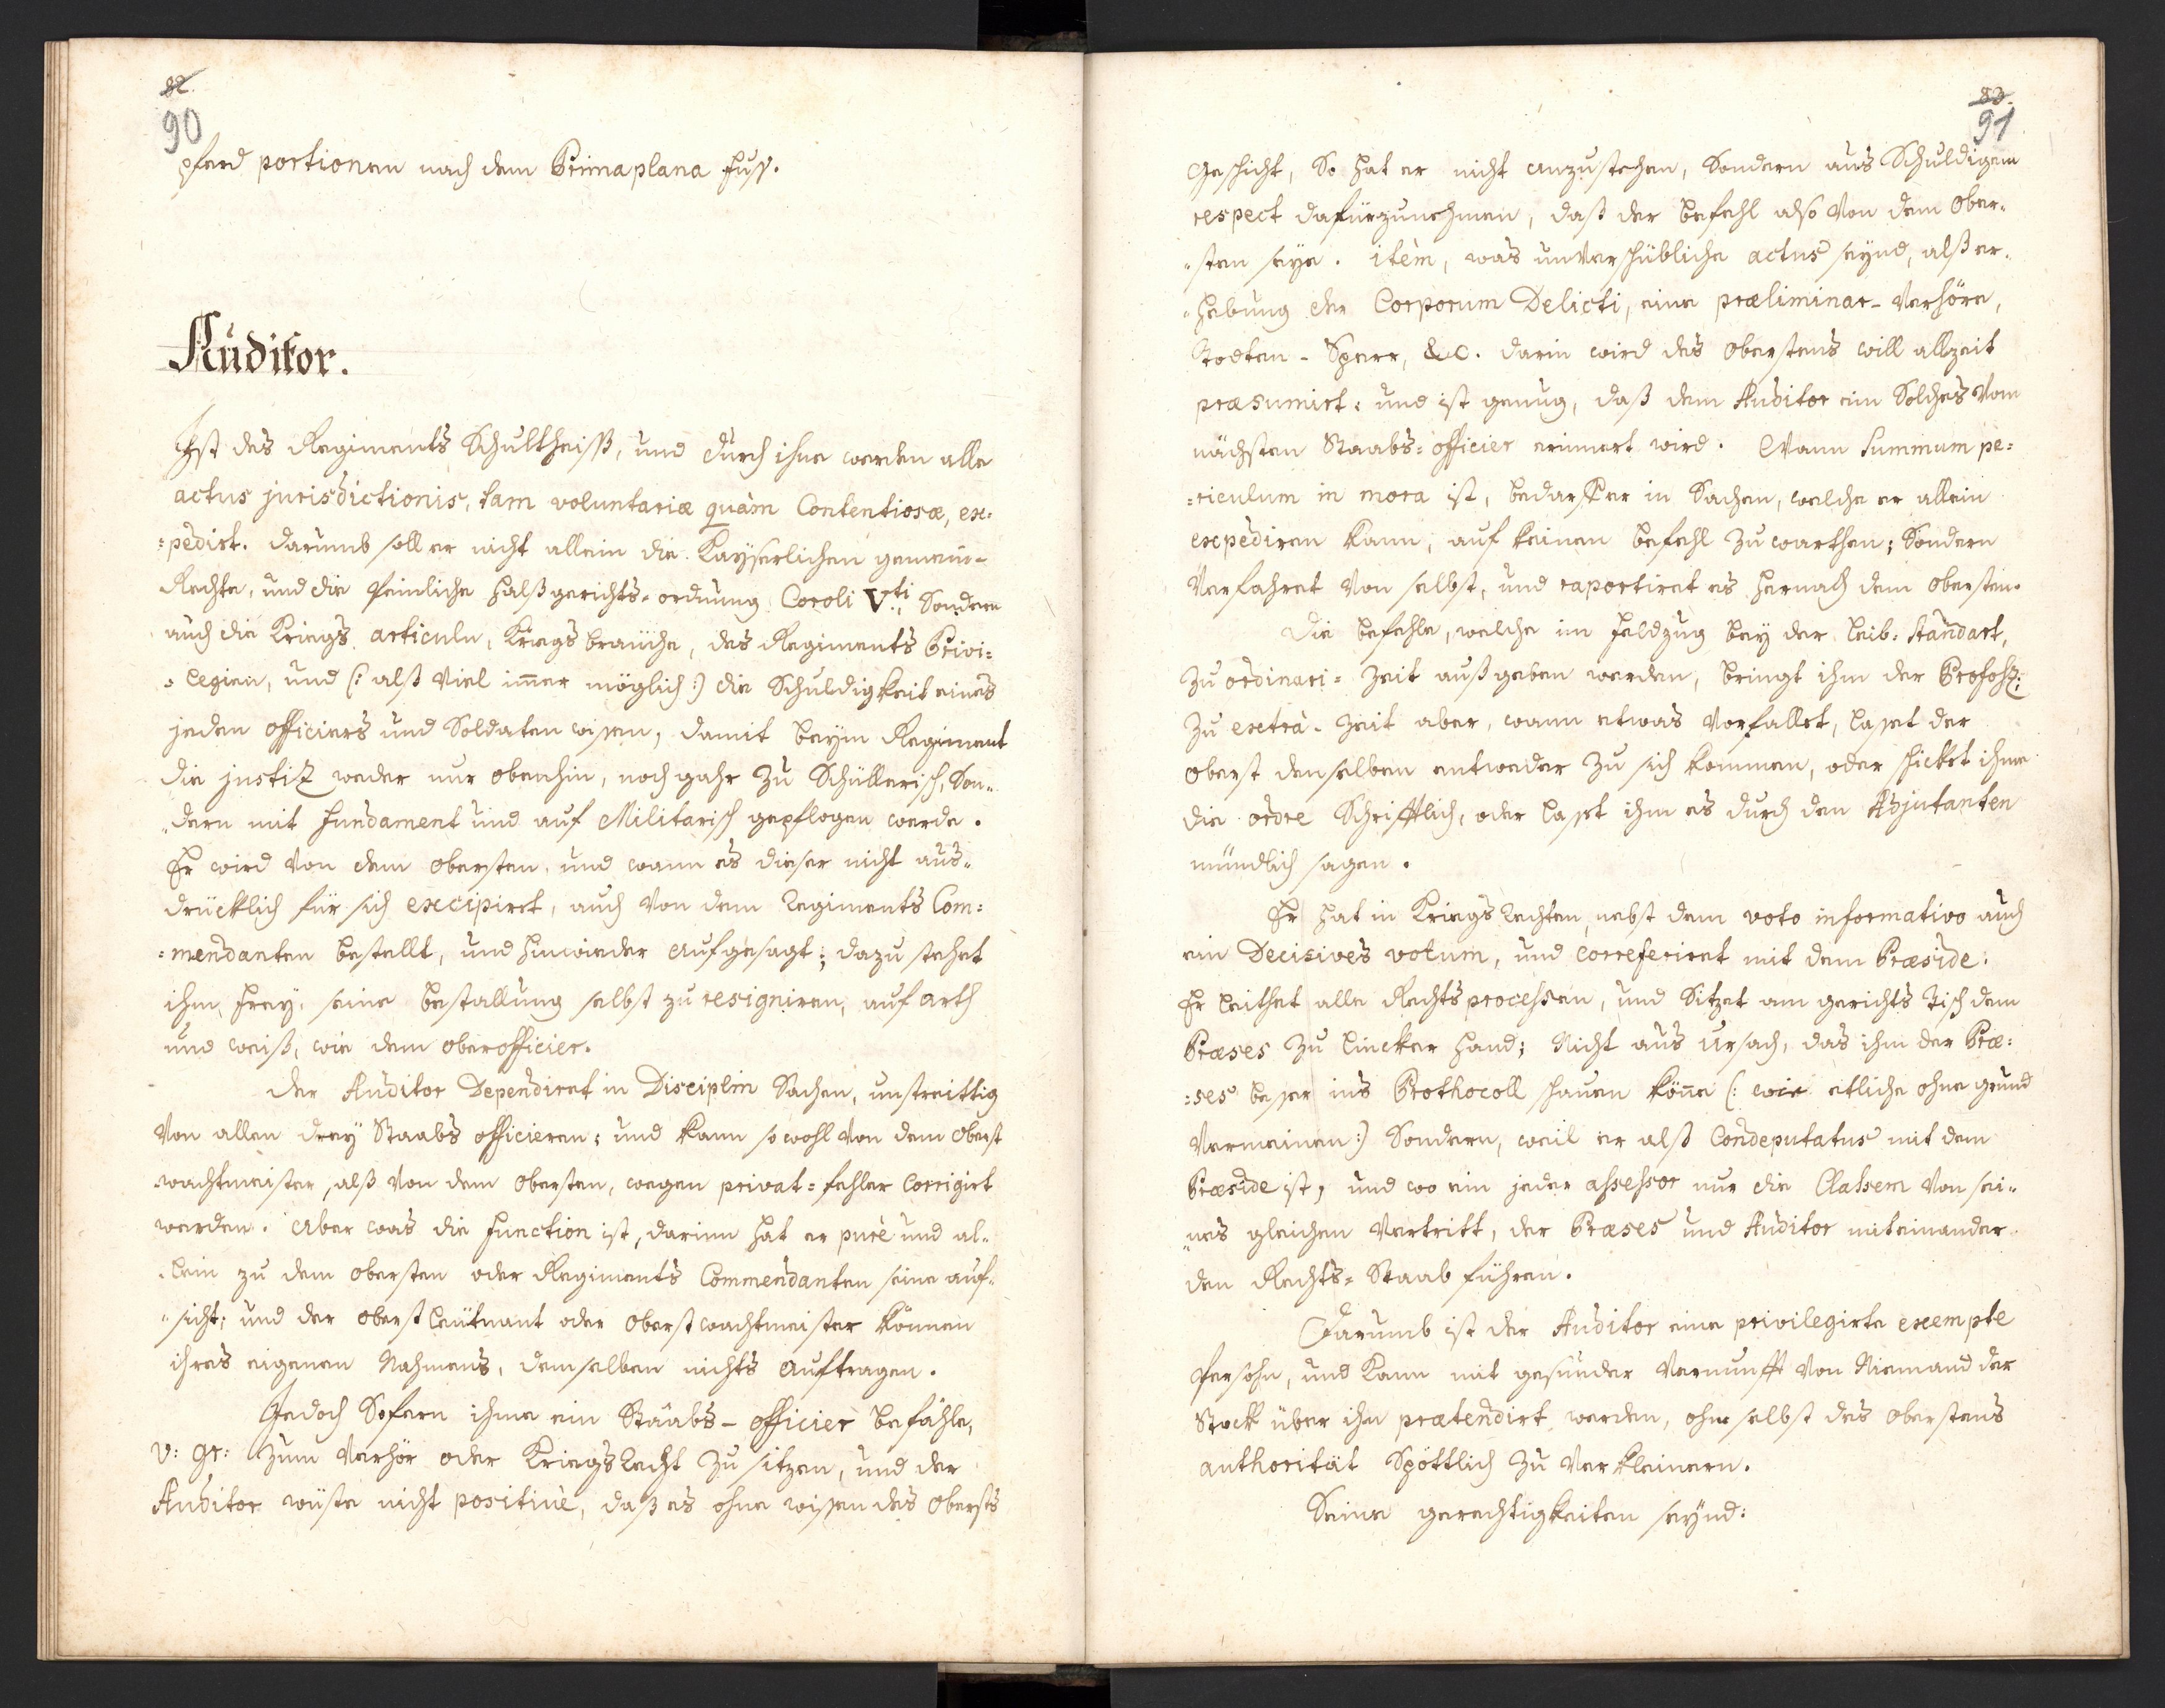 82.
90
pferd portionen nach dem Primaplana Fuss.
Auditor.
Ist des Regiments Schultheiß, und durch ihne werden alle
actus jurisdictionis, tam voluntariæ quàm Contentiosæ, ex=
=pedirt. darumb soll er nicht allein die Kayserlichen gemein-
Rechte, und die Peinliche Halßgerichts=ordnung Caroli Vti, Sondern
auch die Kriegs articuln, Kriegsbräuche, des Regiments Privi=
=legien, und (: alß viel immer möglich :) die Schuldigkeit eines
jeden officiers und Soldaten wissen, damit beym Regiment
die justiz weder nur obenhin, noch gahr zu Schüllerisch, Son=
=dern mit fundament und auf Militarisch gepflogen werde.
Er wird von dem Obersten, und wann es dieser nicht aus=
drücklich für sich excipirt, auch von dem Regiments Com=
=mendanten bestellt, und hinwieder aufgesagt; dazu stehet
ihm frey, seine bestallung selbst zu resigniren, auf arth
und weiß, wie dem oberofficier.
Der Auditor Dependiret in Disciplin Sachen, unstreittig
von allen drey Staabs officieren; und kann sowohl von dem Oberst
wachtmeister, alß von dem Obersten, wegen privat=fehler Corrigirt
werden. Aber was die function ist, darinn hat er purè und al=
=lein zu dem Obersten oder Regiments Commendanten seine auf=
=sicht; und der Oberstleütnant oder Oberstwachtmeister können
ihres eigenen Nahmens, demselben nichts auftragen.
Jedoch Sofern ihme ein Staabs-officier befähle,
v: gr: zum Verhör oder KriegsRecht zu sitzen, und der
Auditor wüste nicht positivè, daß es ohne wissen des Obersts
83.
91
geschicht, So hat er nicht anzustehen, Sondern aus Schuldigem
respect dafürzunehmen, daß der befehl also von dem Ober=
=sten seye. item, was unverschübliche actus seynd, alß er=
=hebung der Corporum Delicti, eine præliminar-Verhöre,
Todten-Sperr, &c. darin wird des Oberstens will allzeit
præsumirt: und ist genug, daß dem Auditor ein Solches vom
nächsten Staabs=officier erinnert wird. Wann Summum pe=
=riculum in mora ist, bedarf er in Sachen, welche er allein
expediren kann, auf keinen befehl zu warthen; Sondern
Verfahret von selbst, und raportiret es hernach dem Obersten.
Die befehle, welche im feldzug bey der Leib=Standart,
zu ordinari=Zeit außgeben werden, bringt ihm der Profoß;
Zu extra-Zeit aber, wann etwas vorfallet, lasset der
Oberst denselben entweder zu sich kommen, oder schicket ihme
die ordre Schrifftlich, oder lasset ihm es durch den Adjutanten
mündlich sagen.
Er hat in KriegsRechten, nebst dem voto informativo auch
ein Decisives votum, und correferiret mit dem Præside.
Er leithet alle Rechtsprocessen, und Sitzet am gerichts Tisch dem
Præses zu lincker Hand; Nicht aus Ursach, das ihm der Præ=
=ses besser ins Prothocoll schauen könne (: wie etliche ohne grund
vermeinen :) Sondern, weil er alß Condeputatus mit dem
Præside ist, und wo ein jeder assessor nur die Classem von sei=
=nes gleichen vertritt, der Præses und Auditor miteinander
den Rechts=Staab führen.
Darumb ist der Auditor eine privilegirte exempte
Persohn, und kann mit gesunder Vernunfft von Niemand der
Stock über ihn prætendirt werden, ohne selbst des Oberstens
authorität Spöttlich zu verkleinern.
Seine gerechtigkeiten seynd: